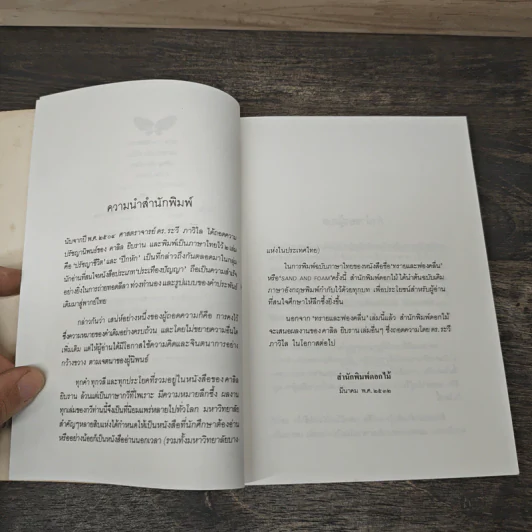 ความนำสำนักพิมพ์
นับจากปี พ.ศ. ๒๕๐๔ ศาสตราจารย์ ดร. ระวี ภาวิไล ได้ถอดความ
ปรัชญานิพนธ์ของ คาลิล ยิบราน และพิมพ์เป็นภาษาไทยไว้ ๒ เล่ม
คือ 'ปรัชญาชีวิต' และ 'ปีกหัก' เป็นที่กล่าวถึงกันตลอดมาในกลุ่ม
นักอ่านที่สนใจหนังสือประเภท 'ประเทืองปัญญา' ถือเป็นความสำเร็จ
อย่างยิ่งในการถ่ายทอดลีลา ท่วงทำนอง และรูปแบบของคำประพันธ์
เดิมมาสู่พากย์ไทย
กล่าวกันว่า เสน่ห์อย่างหนึ่งของผู้ถอดความก็คือ การคงไว้
ซึ่งความหมายของคำเดิมอย่างครบถ้วน และโดยไม่ขยายความอื่นใด
เพิ่มเติม แต่ให้ผู้อ่านได้มีโอกาสใช้ความคิดและจินตนาการอย่าง
กว้างขวาง ตามเจตนาของผู้นิพนธ์
ทุกคำ ทุกวลี และทุกประโยคที่รวมอยู่ในหนังสือของ คาลิล
ยิบราน ล้วนแต่เป็นภาษากวีที่ไพเราะ มีความหมายลึกซึ้ง ผลงาน
ทุกเล่มของกวีท่านนี้จึงเป็นที่นิยมแพร่หลายไปทั่วโลก มหาวิทยาลัย
สำคัญๆ หลายสิบแห่งได้กำหนดให้เป็นหนังสือที่นักศึกษาต้องอ่าน
หรืออย่างน้อยก็เป็นหนังสืออ่านนอกเวลา (รวมทั้งมหาวิทยาลัยบาง
แห่งในประเทศไทย)
ในการพิมพ์ฉบับภาษาไทยของหนังสือชื่อ 'ทรายและฟองคลื่น'
หรือ 'SAND AND FOAM' ครั้งนี้ สำนักพิมพ์ดอกไม้ ได้นำต้นฉบับเดิม
ภาษาอังกฤษพิมพ์กำกับไว้ด้วยทุกบท เพื่อประโยชน์สำหรับผู้อ่าน
ที่สนใจศึกษาให้ลึกซึ้งยิ่งขึ้น
นอกจาก 'ทรายและฟองคลื่น' เล่มนี้แล้ว สำนักพิมพ์ดอกไม้
จะเสนอผลงานของ คาลิล ยิบราน เล่มอื่นๆ ซึ่งถอดความโดย ดร. ระวี
ภาวิไล ในโอกาสต่อไป
สำนักพิมพ์ดอกไม้
มีนาคม พ.ศ. ๒๕๓๒